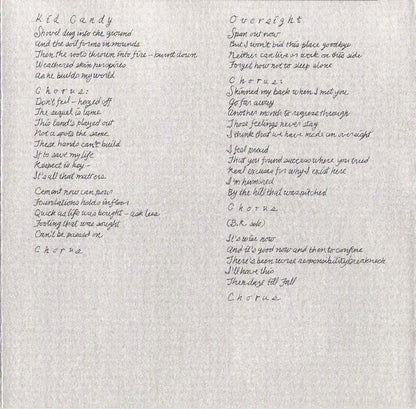 Kid Candy
Shovel dug into the ground
And the soil forms in mounds
Then the roots thrown into fire - burnt down
Weathered skin perspires
As he builds my world
Chorus:
Don't feel - hazed off
The sequel is lame
This land's played out
Not a spot's the same
These hands can't build
It to save my life
Respect is key -
It's all that matters
Cement now can pour
Foundations holds in fours
Quick as life was bought - ask less
Footing that was sought
Can't be passed on
Chorus
Oversight
Span out now
But I won't bid this place goodbye
Neither can live or work on this side
Forget how not to sleep alone
Chorus:
Skinned my back when I met you
Go far away
Another month to regress through
Those feelings never stay
I think that we have made an oversight
I feel proud
That you found success where you tried
Real excuse for why I exist here
I'm humored
By the hill that was pitched
Chorus
(B.K. solo)
It's wise now
And it's good now and then to confine
There's been worse responsibility breakneck
I'll have this
Then days till Fall
Chorus